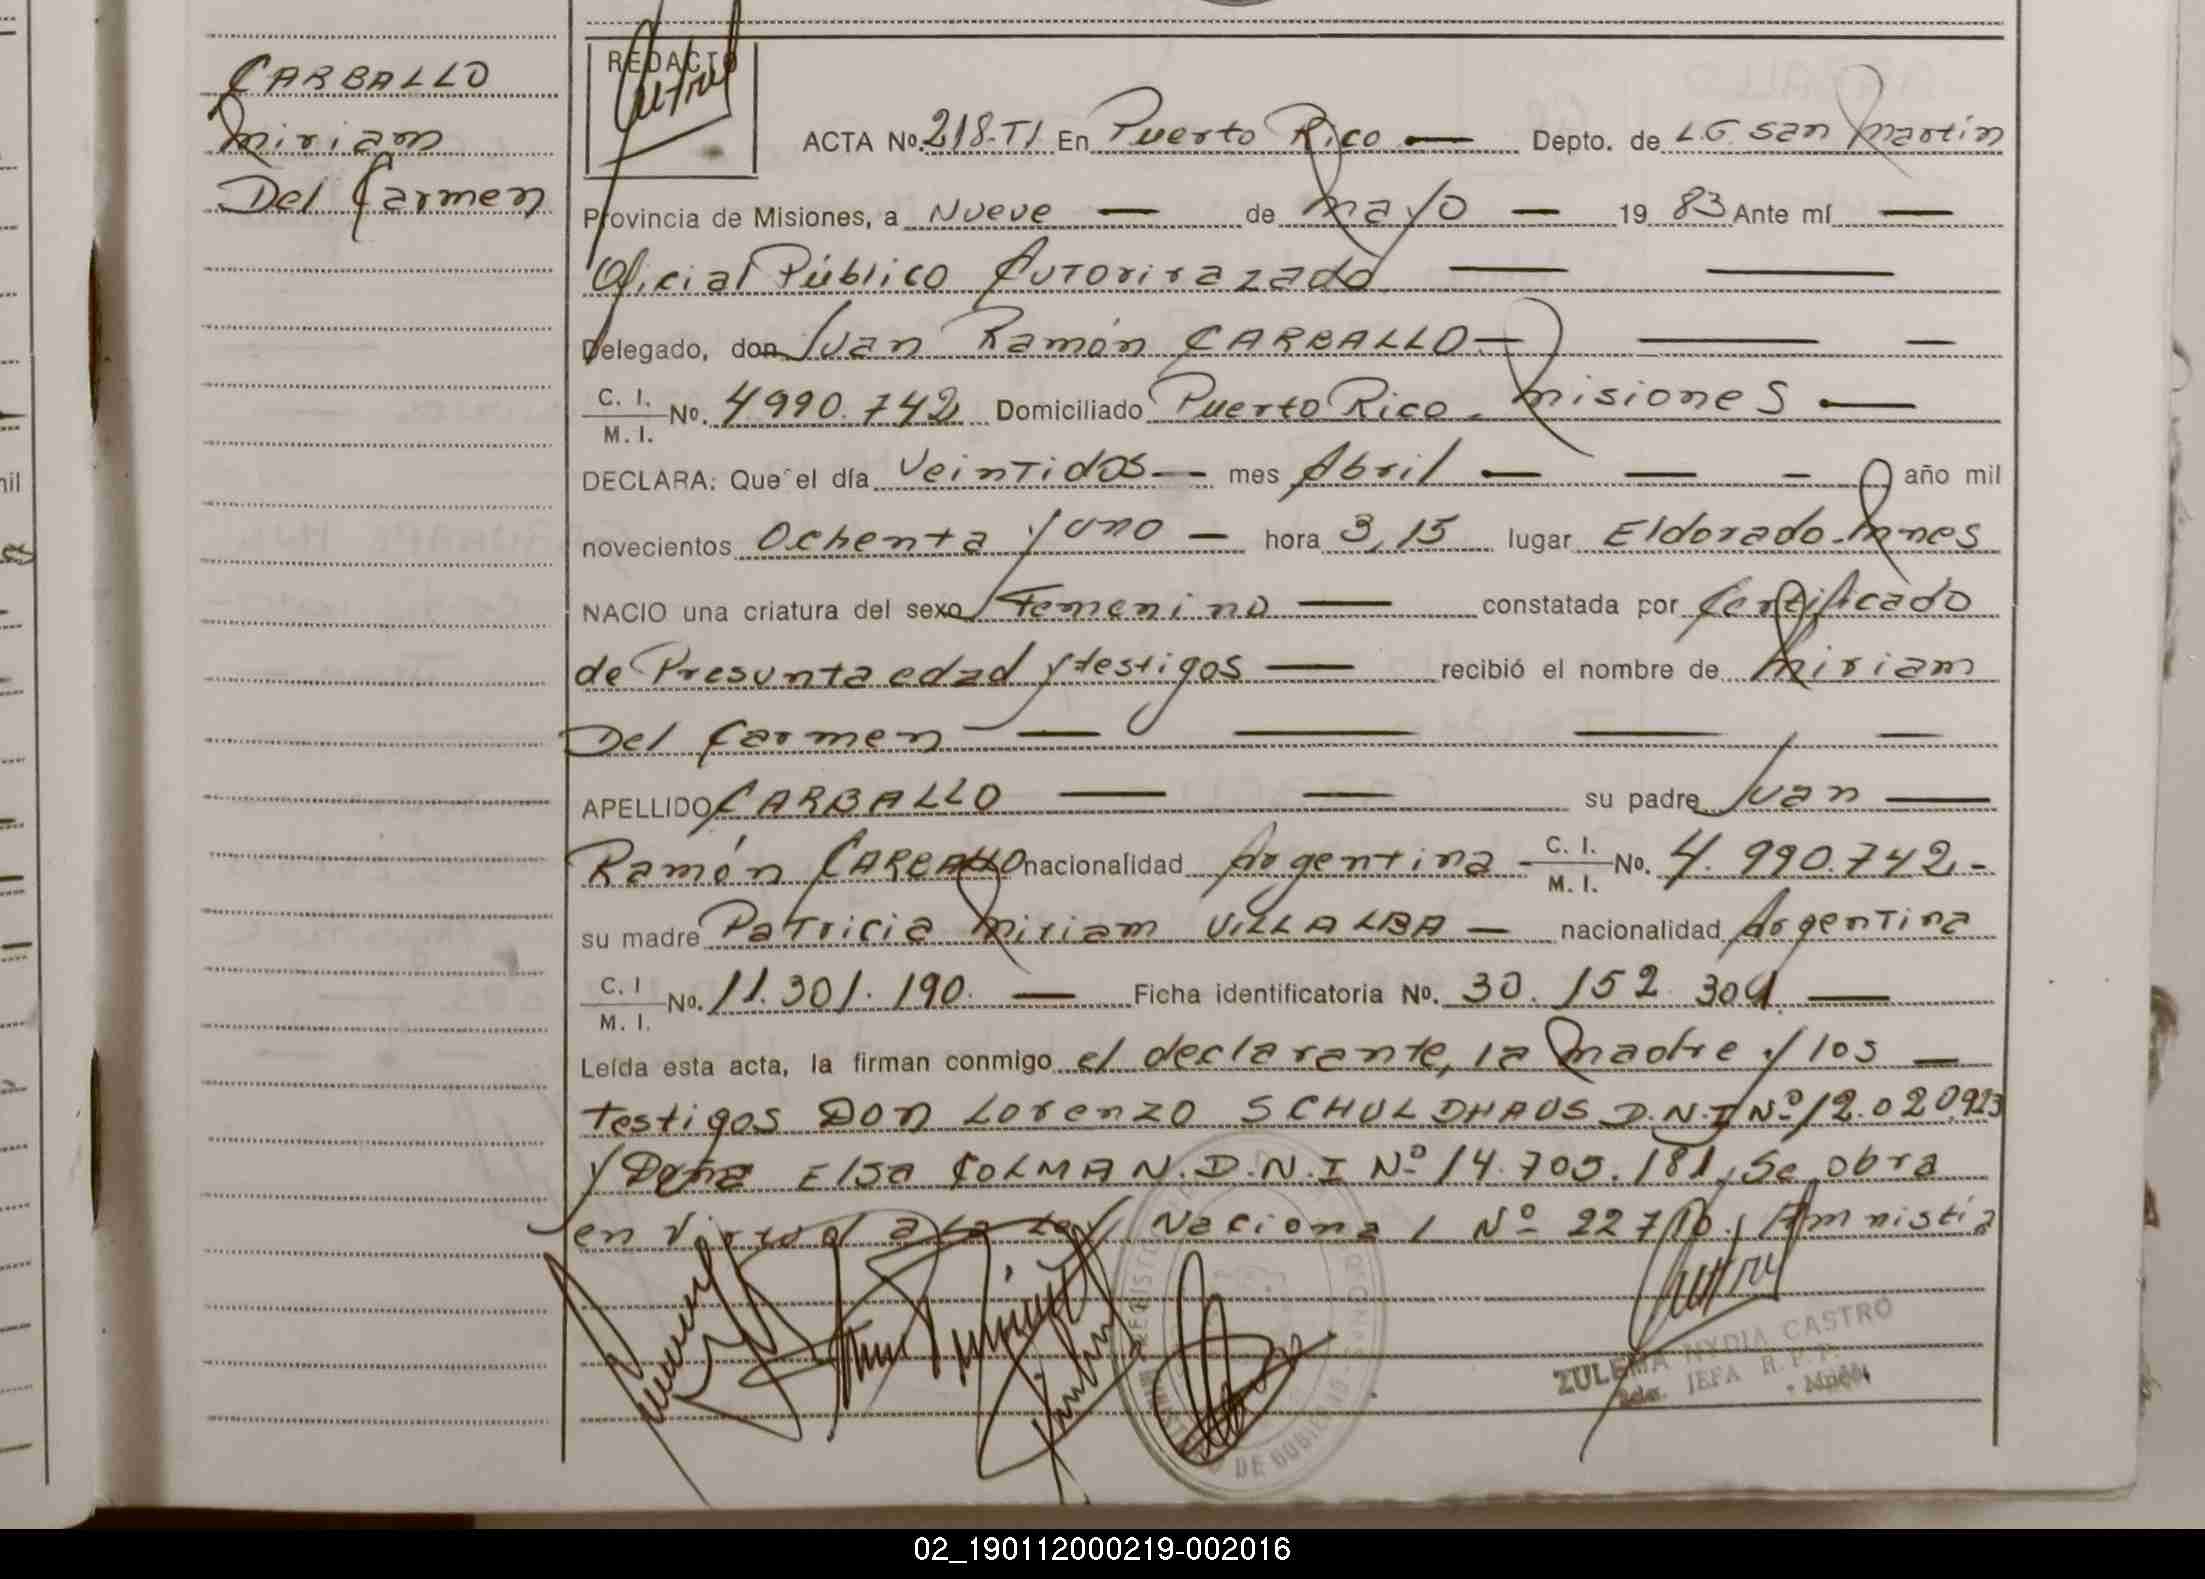 CARBALLO
Miriam
Del Carmen
REDACTO
ACTA No. 218.TI En Puerto Rico — Depto. de L.G. San Martín
Provincia de Misiones, a Nueve — de mayo — 19 83 Ante mí —
Oficial Público Autorirazado — —
Delegado, don Juan Ramón CARBALLO — — —
C. I. / M. I. No. 4990.742 Domiciliado Puerto Rico - Misiones —
DECLARA: Que el día Veintidos — mes Abril — — - año mil
novecientos Ochenta y uno — hora 3,15 lugar Eldorado-Mnes
NACIO una criatura del sexo Femenino — constatada por Certificado
de Presunta edad y testigos — recibió el nombre de Miriam
Del Carmen — — — —
APELLIDO CARBALLO — — su padre Juan —
Ramón CARBALLO nacionalidad Argentina - C. I. / M. I. No. 4.990.742.-
su madre Patricia Miriam VILLALBA — nacionalidad Argentina
C. I / M. I. No. 11.301.190. — Ficha identificatoria No. 30.152.304. —
Leída esta acta, la firman conmigo el declarante, la madre y los —
testigos DON Lorenzo SCHULDHAUS D.N.I Nº 12.020.923
y Doña Elsa COLMAN. D.N.I Nº 14.705.181, Se obra
en Virtud a la Ley Nacional Nº 22710, Amnistía
ZULEMA NYDIA CASTRO
JEFA R.P.P.
02_190112000219-002016